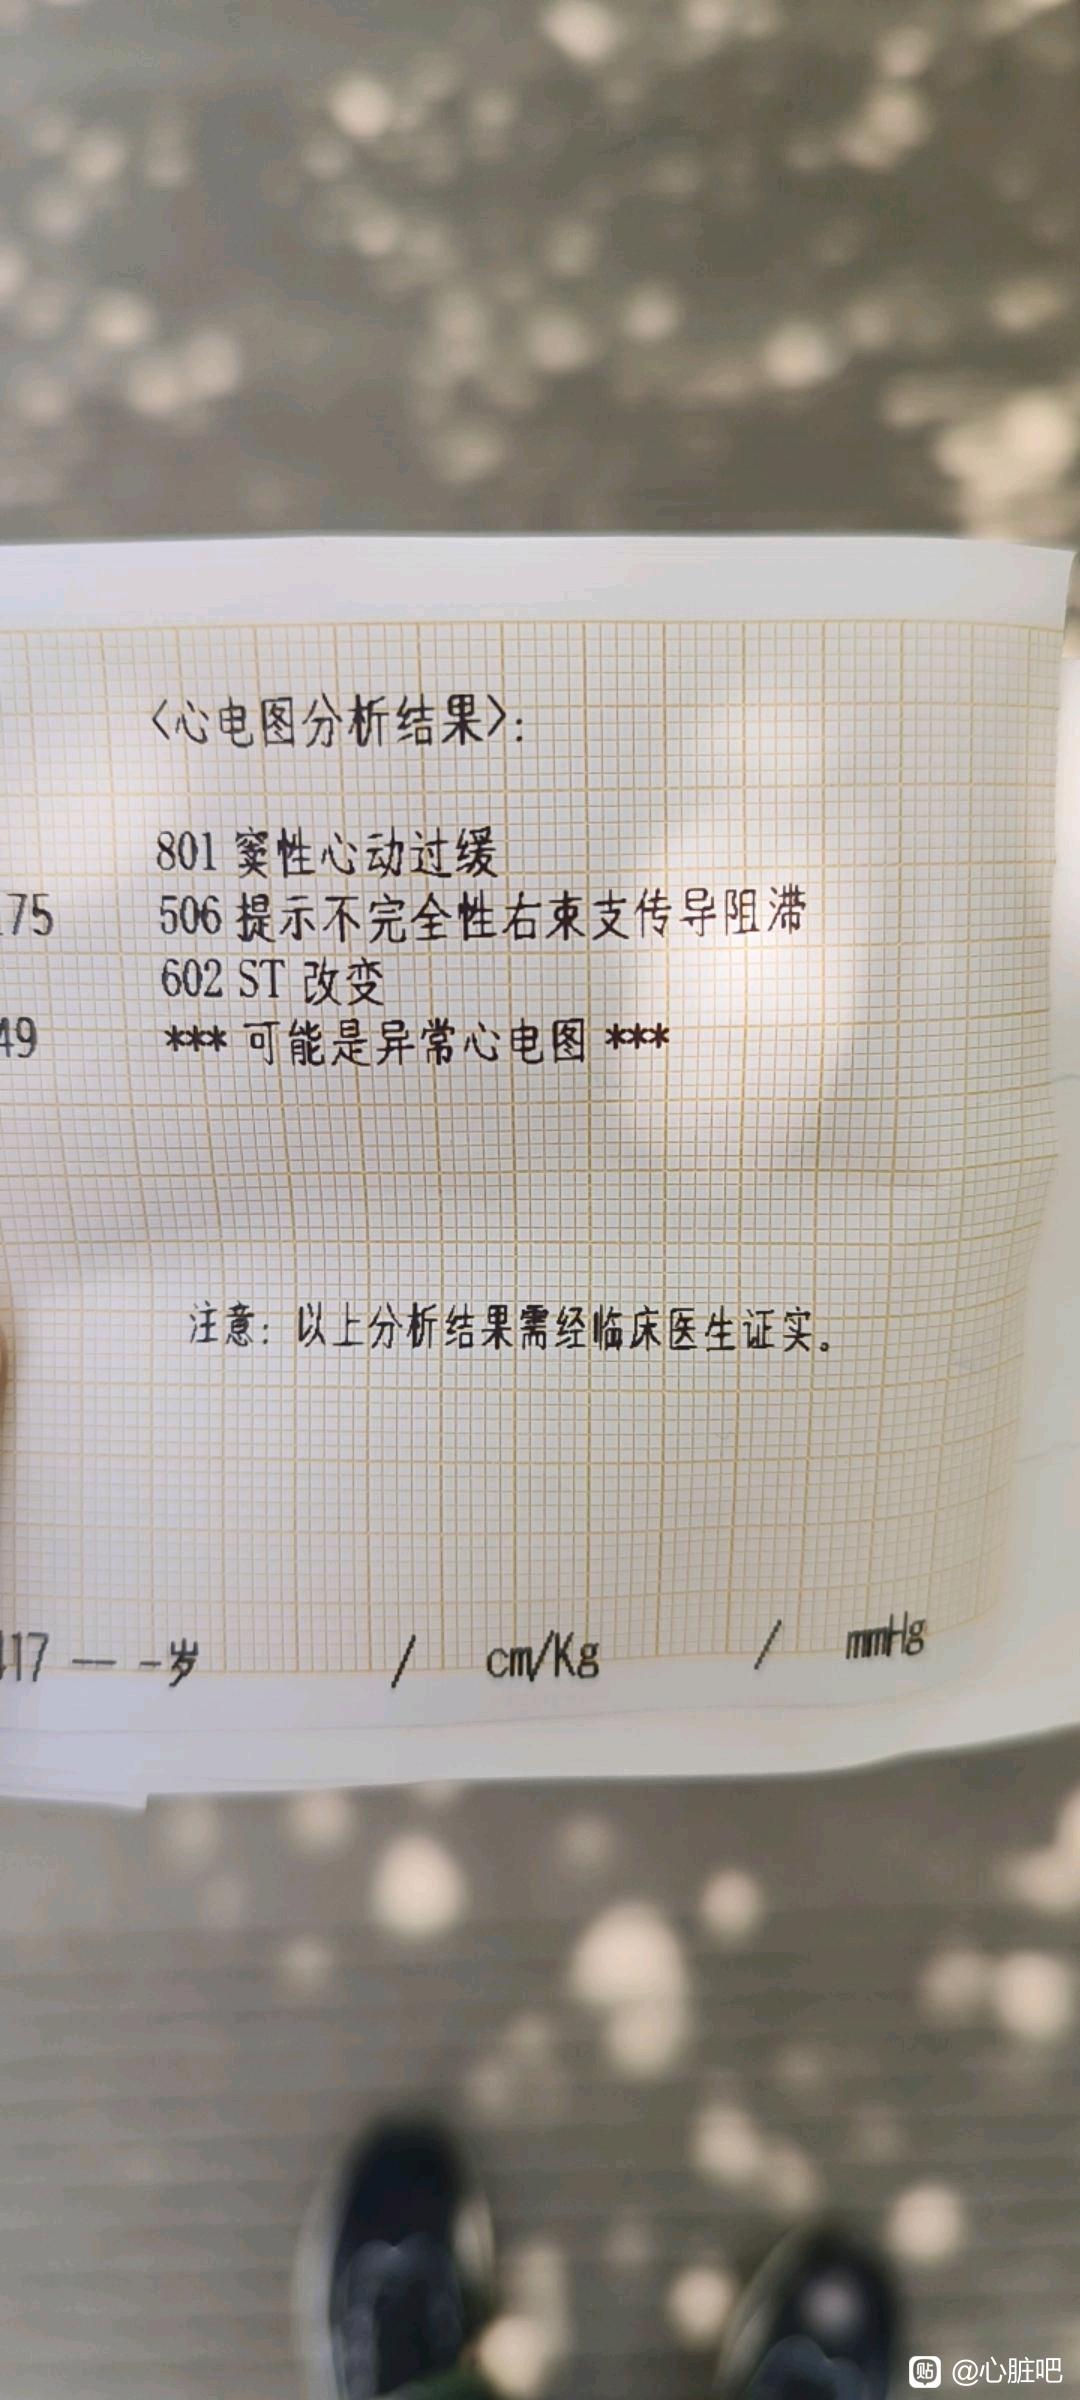 〈心电图分析结果〉:
801 窦性心动过缓
506 提示不完全性右束支传导阻滞
75
602 ST 改变
*** 可能是异常心电图 ***
49
注意: 以上分析结果需经临床医生证实。
117 —— -岁 / cm/Kg / mmHg
贴 @心脏吧